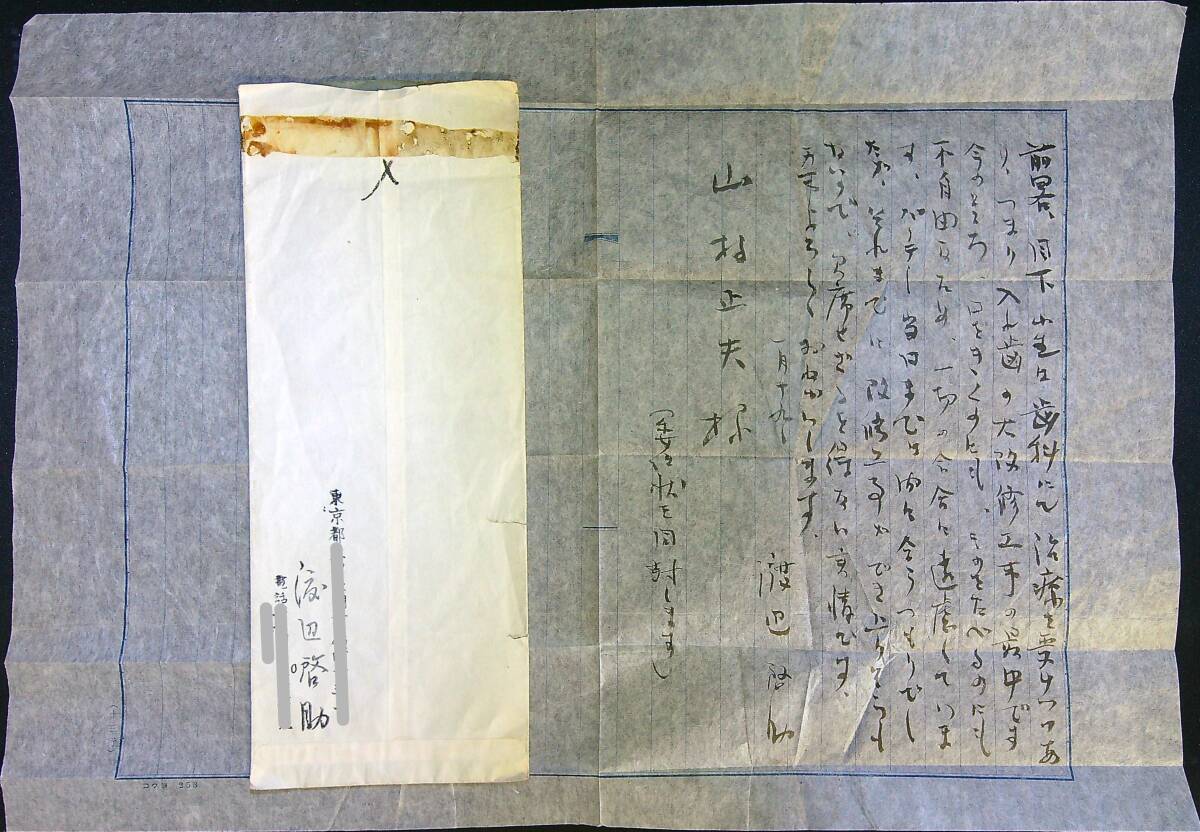 前略、目下小生は歯科にて治療を受けつつあ
り、つまり入れ歯の大改修工事の最中です
今のところ、口をきくのにも、ものをたべるのにも
不自由なため、一切の会合に遠慮していま
す、パーテー当日までは間に合うつもりでし
たが、それまでに改修工事ができ上りそうも
ないので、欠席せざるを得ない実情です、
万事よろしくおねがいします、
一月十九日
渡辺啓助
山村正夫様
(委任状を同封します)
〆
東京都
電話
渡辺啓助
コクヨ 253